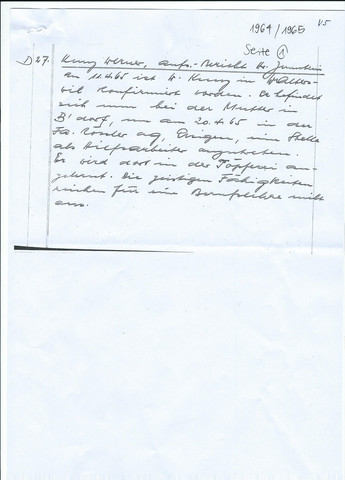 1964 / 1965 V5
Seite 1
D 27. Kunz Werner, aufs.-Bericht
Am 11.4.65 ist W. Kunz in Walters-
wil konfirmiert worden. Er befindet
sich nun bei der Mutter in
B'dorf, um am 20.4.65 in der
Fa. Rössler ag, Ersigen, eine Stelle
als Hilfsarbeiter anzutreten.
Es wird dort in der Töpferei an-
gelernt. Die geistigen Fähigkeiten
reichen für eine Berufslehre nicht
aus.